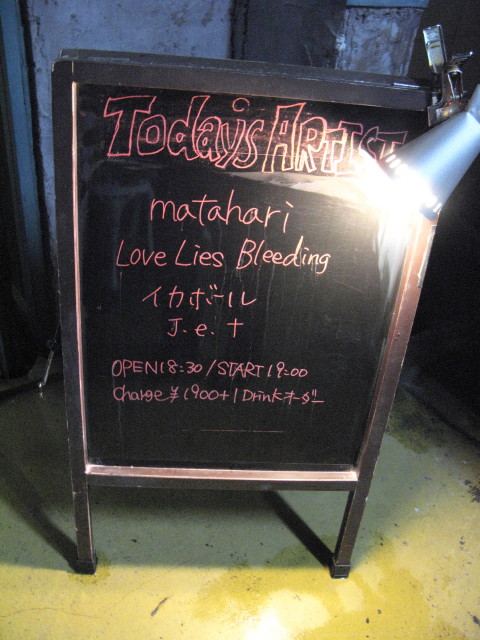 Today's ARTIST
matahari
Love Lies Bleeding
イカボール
J.e.t
OPEN18:30/START19:00
Charge¥1900+1Drinkオーダー